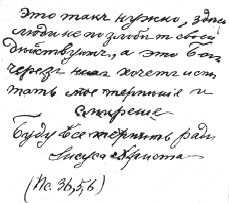 это такъ нужно, здесь
люди не по злобѣ своей
дѣйствуютъ, а это Богъ
черезъ нихъ хочетъ испы
тать мое терпѣніе и
смиреніе
Буду все терпѣть ради
Іисуса Христа
(Пс. 36,5,6)